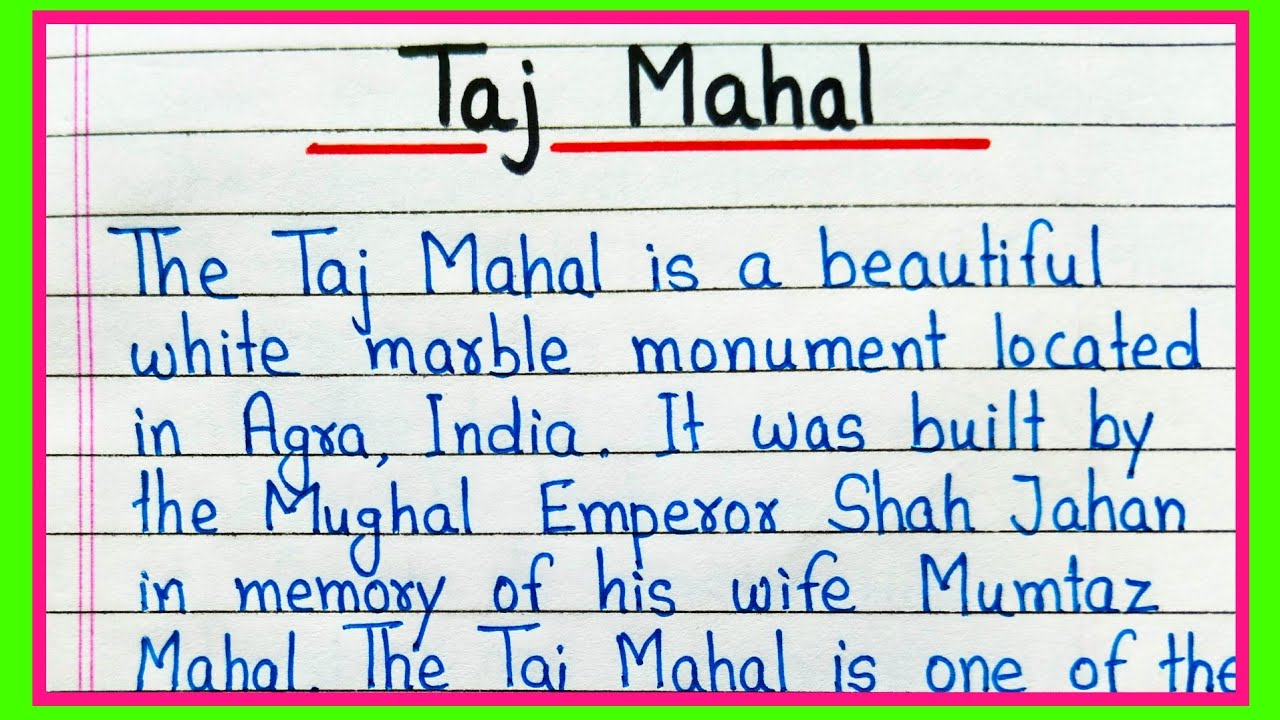 Taj Mahal
The Taj Mahal is a beautiful
white marble monument located
in Agra, India. It was built by
the Mughal Emperor Shah Jahan
in memory of his wife Mumtaz
Mahal. The Taj Mahal is one of the